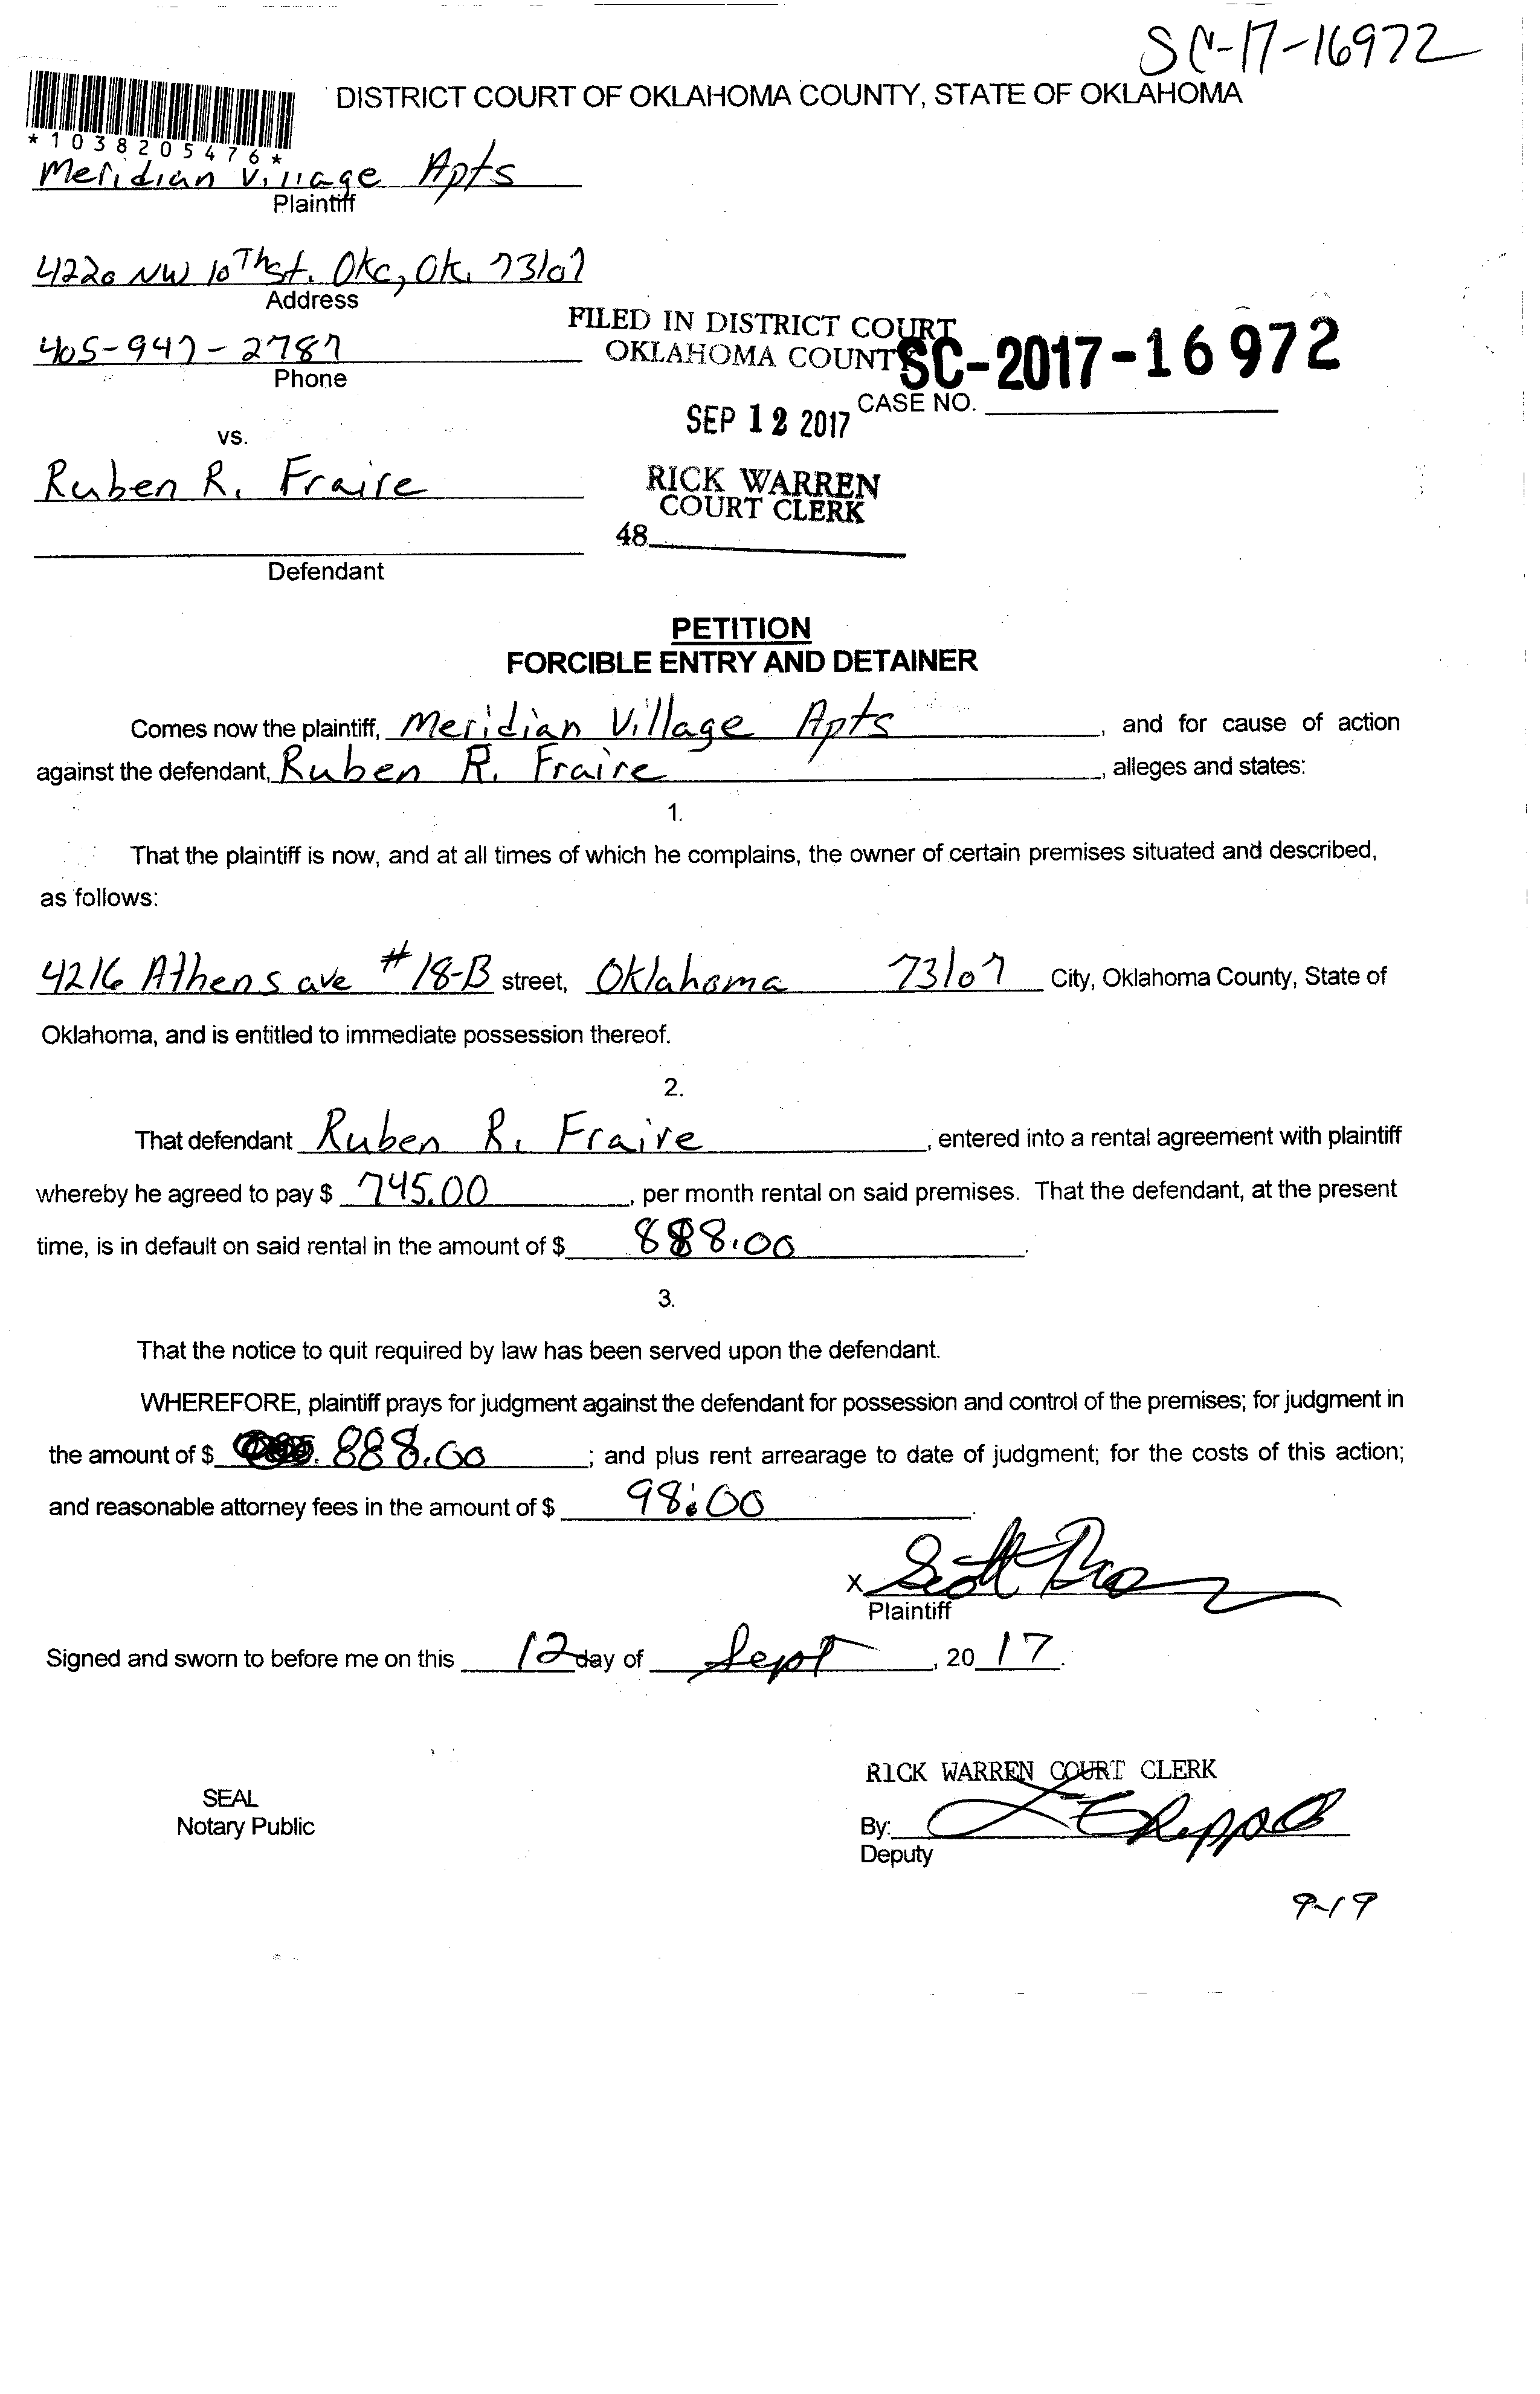 SC-17-16972
DISTRICT COURT OF OKLAHOMA COUNTY, STATE OF OKLAHOMA
*1038205476*
Meridian Village Apts
Plaintiff
4220 NW 10Th st. Okc, Ok. 73107
Address
FILED IN DISTRICT COURT
OKLAHOMA COUNTY
SC-2017-16972
405-947-2787
Phone
CASE NO.
SEP 12 2017
vs.
Ruben R. Fraire
RICK WARREN
COURT CLERK
48
Defendant
PETITION
FORCIBLE ENTRY AND DETAINER
Comes now the plaintiff, Meridian Village Apts, and for cause of action
against the defendant, Ruben R. Fraire, alleges and states:
1.
That the plaintiff is now, and at all times of which he complains, the owner of certain premises situated and described,
as follows:
4216 Athens ave #18-B street, Oklahoma 73107 City, Oklahoma County, State of
Oklahoma, and is entitled to immediate possession thereof.
2.
That defendant Ruben R. Fraire, entered into a rental agreement with plaintiff
whereby he agreed to pay $ 745.00, per month rental on said premises. That the defendant, at the present
time, is in default on said rental in the amount of $ 888.00.
3.
That the notice to quit required by law has been served upon the defendant.
WHEREFORE, plaintiff prays for judgment against the defendant for possession and control of the premises; for judgment in
the amount of $ 888.00; and plus rent arrearage to date of judgment; for the costs of this action;
and reasonable attorney fees in the amount of $ 98.00.
X Scott
Plaintiff
Signed and sworn to before me on this 12 day of Sept, 2017.
RICK WARREN COURT CLERK
SEAL
Notary Public
By:
Deputy
9-19